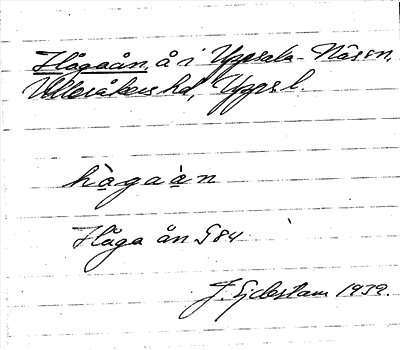 Hågaån, å i Uppsala-Näs sn,
Ulleråkers hd, Upps. l.
hågaån
Håga ån G84
J. Ejdestam 1932.